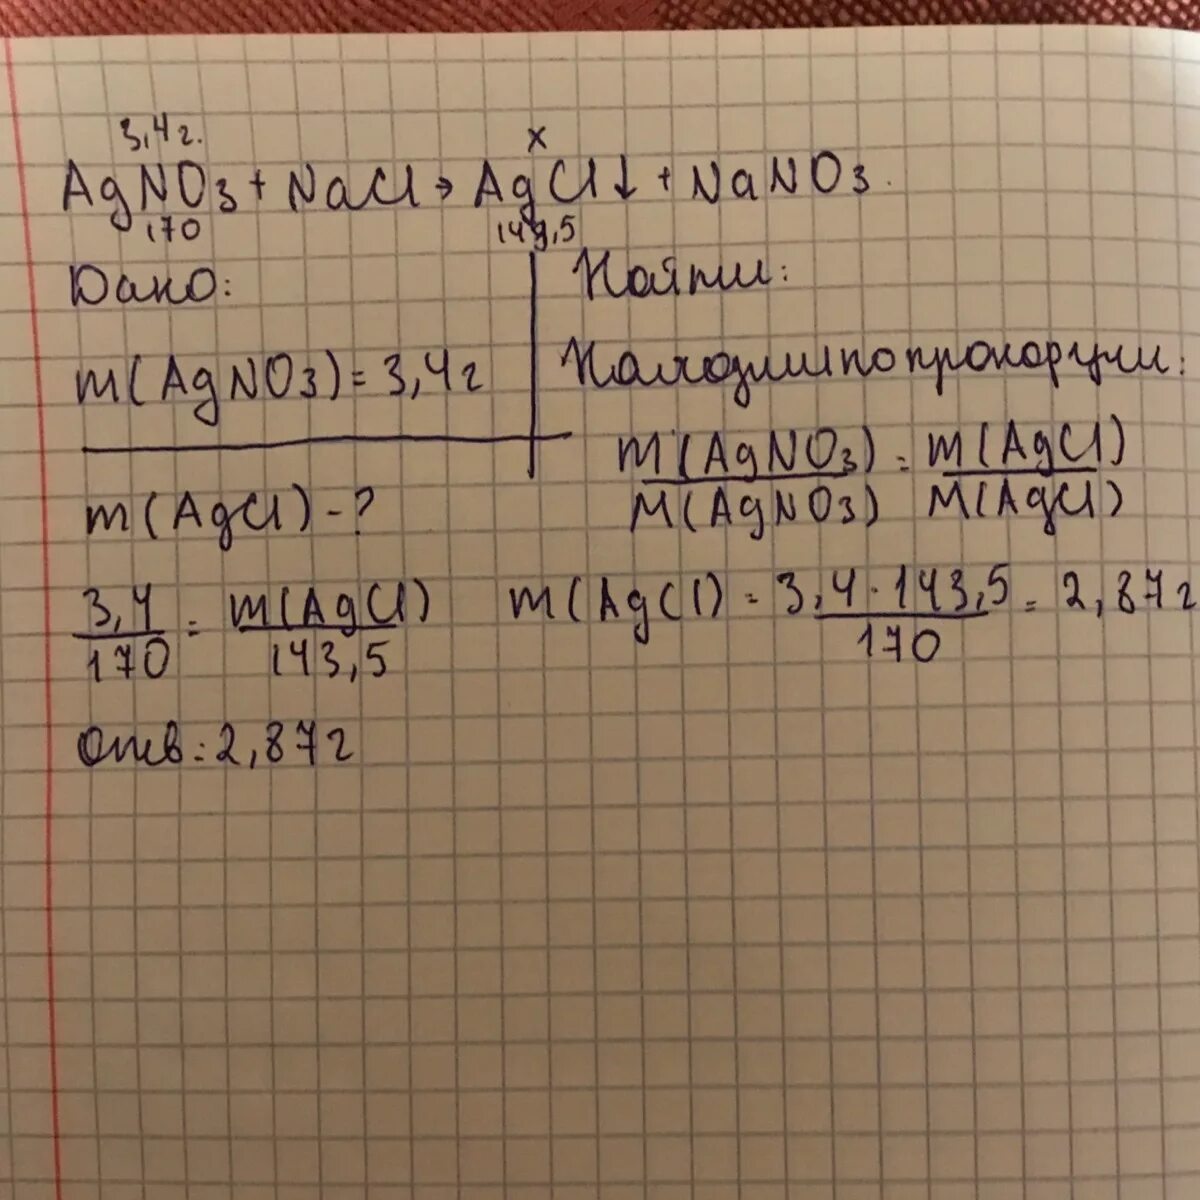 3,4г. x
AgNO3 + NaCl → AgCl↓ + NaNO3.
170 143,5
Дано:
m(AgNO3) = 3,4г
m(AgCl) - ?
Найти:
Находим по пропорции:
m(AgNO3) / M(AgNO3) = m(AgCl) / M(AgCl)
3,4 / 170 = m(AgCl) / 143,5
m(AgCl) = 3,4 · 143,5 / 170 = 2,87г
Отв: 2,87г